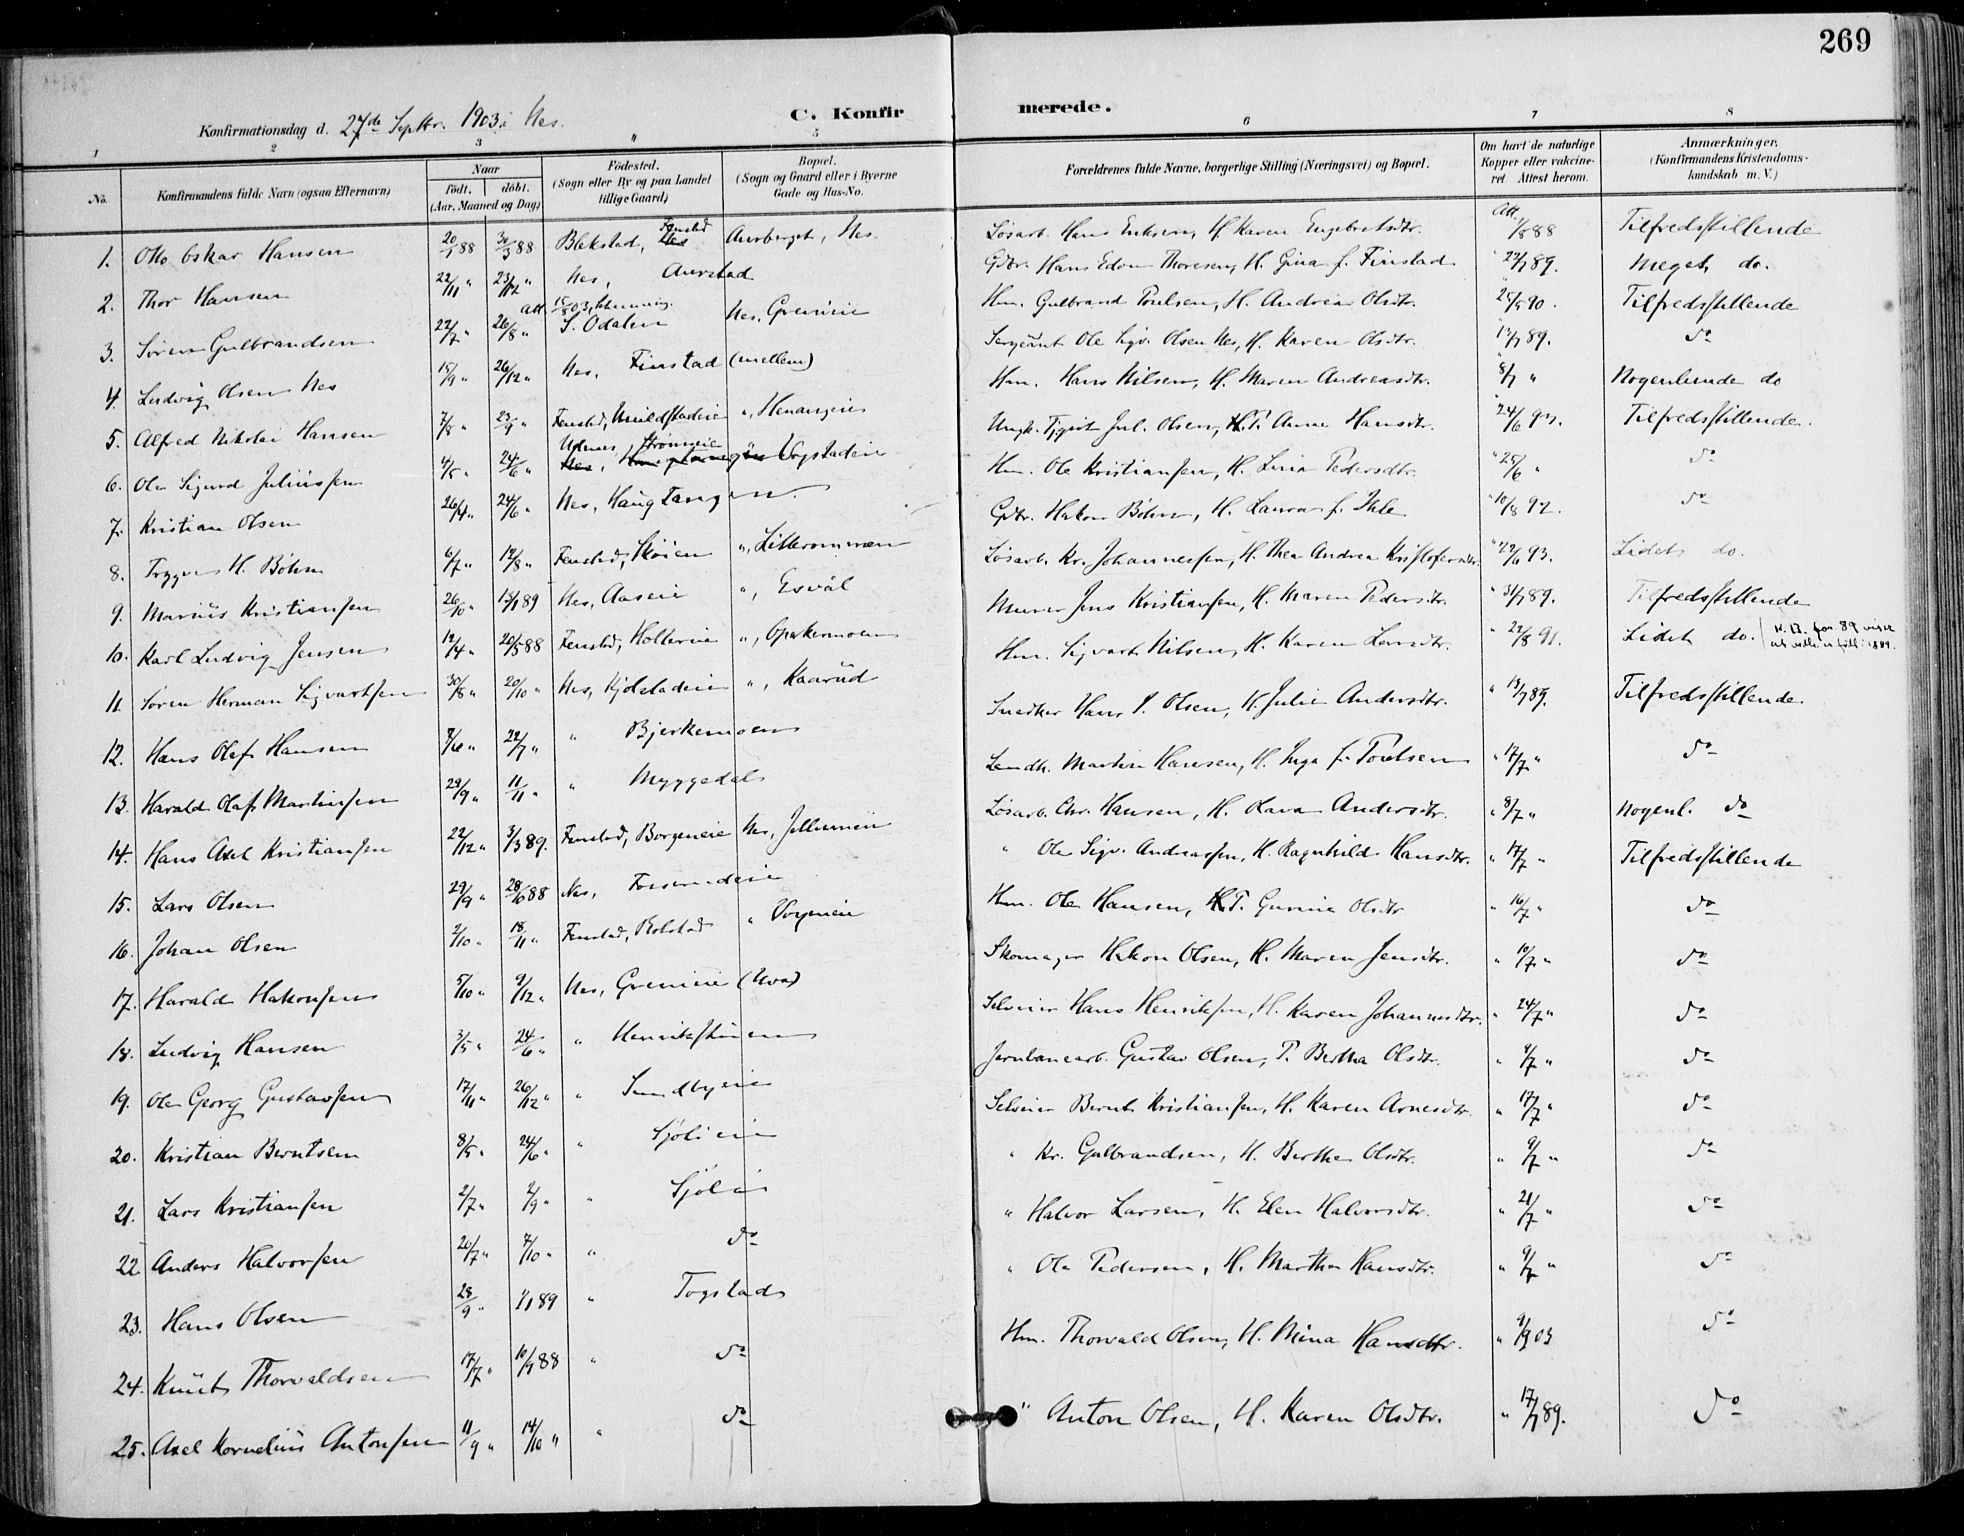 269
Konfirmationsdag d. 27de Septbr. 1903 i Nes.
C. Konfirmerede.
1 2 3 4 5 6 7 8
No. Konfirmandens fulde Navn (ogsaa Efternavn) Naar født. døbt. (Aar, Maaned og Dag) Fødested. (Sogn eller By og paa Landet tillige Gaard) Bopæl. (Sogn og Gaard eller i Byerne Gade og Hus-No. Forældrenes fulde Navne, borgerlige Stilling (Næringsvei) og Bopæl. Om havt de naturlige Kopper eller vakcineret. Attest herom. Anmærkninger. (Konfirmandens Kristendomskundskab m. V.)
1. Otto Oskar Hansen 20/1 88 30/3 88 Blekstad, Fenstad Aurberget, Nes. Løsarb. Hans Eriksen, H. Karen Engebretsdtr. Att. 1/8 88 Tilfredsstillende
2. Thor Hansen 22/11 " 23/12 " Nes, Aurstad Gbr. Hans Edvin Thoresen, H. Gina f. Finstad " 22/7 89. Meget do.
3. Søren Gulbrandsen 22/7 " 26/8 " S. Odalen Nes, Greneie Hm. Gulbrand Poulsen, H. Andrea Olsdtr. " 25/5 90. Tilfredsstillende
4. Ludvig Olsen Nes 15/9 " 26/12 " Nes, Finstad (mellem) Sergeant Ole Sigv. Olsen Nes, H. Karen Olsdtr. " 13/7 89. do
5. Alfred Nikolai Hansen 7/8 " 23/9 " Fenstad, " Henangeie Hm. Hans Nilsen, H. Maren Andreasdtr. " 8/7 " Nogenlunde do
6. Ole Sigurd Juliussen 4/5 " 24/6 " Udenes, Strømseie Vogstadeie Ungk. Tjgivt Jul. Olsen, T. Anne Hansdtr. " 24/6 93. Tilfredsstillende.
7. Kristian Olsen 26/4 " 24/6 " Nes, Haugtangen. Hm. Ole Kristiansen, H. Lina Pedersdtr. " 25/6 " do
8. Trygve H. Bøhn 6/7 " 12/8 " Fenstad, Skøien ", Litleromnæs Gbr. Hakon Bøhn, H. Laura f. Ihle " 10/8 92. do
9. Marius Kristiansen 26/10 " 13/1 89 Nes, Aaseie ", Esvål Løsarb. Kr. Johannessen, H. Thea Andrea Kristofersdtr. " 22/6 93. Lidet do.
10. Karl Ludvig Jensen 12/4 " 20/5 88 Fenstad, Holtereie ", Opakermoen Murer Jens Kristiansen, H. Maren Pedersdtr. " 31/7 89. Tilfredsstillende
11. Søren Herman Sigvartsen 30/8 " 20/10 " Nes, Kjølstadeie ", Kaarud Hm. Sigvart Nilsen, H. Karen Larsdtr. " 22/8 91. Lidet do.
12. Hans Olaf Hansen 22/7 " " Bjerkemoen Snedker Hans P. Olsen, H. Julie Andersdtr. " 13/7 89. Tilfredsstillende.
13. Harald Olaf Martinsen 29/9 " 11/11 " " Myggedal Landh. Martin Hansen, H. Inga f. Poulsen " 17/7 " do
14. Hans Axel Kristiansen 22/12 " 3/3 89. Fenstad, Borgeneie Nes, Løsarb. Chr. Hansen, H. Olava Andersdtr. " 8/7 " Nogenl. do
15. Lars Olsen 29/9 " 28/10 88 Nes, " Ole Sigv. Andreassen, H. Ragnhild Hansdtr. " 17/7 " Tilfredsstillende
16. Johan Olsen 2/10 " 18/11 " Fenstad, Rolstad " Vormeie Hm. Ole Hansen, T. Gurine Olsdtr " 16/7 " do
17. Harald Hakonsen 5/10 " 9/12 " Nes, Greneie (Uva) Skomager Hakon Olsen, H. Maren Jensdtr. " 10/7 " do
18. Ludvig Hansen 3/5 " 24/6 " " Henrikstuen Selveier Hans Henriksen, H. Karen Johannesdtr. " 24/7 " do
19. Ole Georg Gustavsen 17/11 " 26/12 " " Sundbyeie Jernbanearb. Gustav Olsen, T. Bertha Olsdtr. " 9/7 " do
20. Kristian Berntsen 8/5 " 24/6 " " Sjølieie Selveier Bernt Kristiansen, H. Karen Arnesdtr. " 17/7 " do
21. Lars Kristiansen 2/7 " 2/9 " " Sjøli " Kr. Gulbrandsen, H. Berthe Olsdtr. " 9/7 " do
22. Anders Halvorsen 20/7 " 7/10 " " do " Halvor Larsen, H. Elen Halvorsdtr. " 21/7 " do
23. Hans Olsen 28/9 " 1/1 89 " Togstad " Ole Pedersen, H. Marthe Hansdtr. " 9/7 " do
24. Knut Thorvaldsen 17/7 " 10/9 88 " do Hm. Thorvald Olsen, H. Mina Hansdtr. " 9/9 03 do
25. Axel Kornelius Antonsen 11/9 " 14/10 " " do " Anton Olsen, H. Karen Olsdtr. " 17/7 89. do